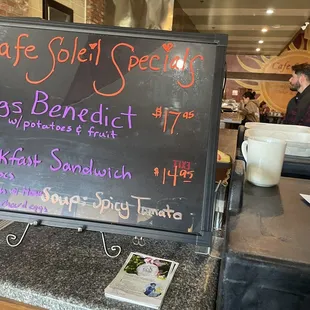 Cafe Soleil Specials
gs Benedict $17.95
w/potatoes & fruit
kfast Sandwich $14.95
Soup: Spicy Tomato